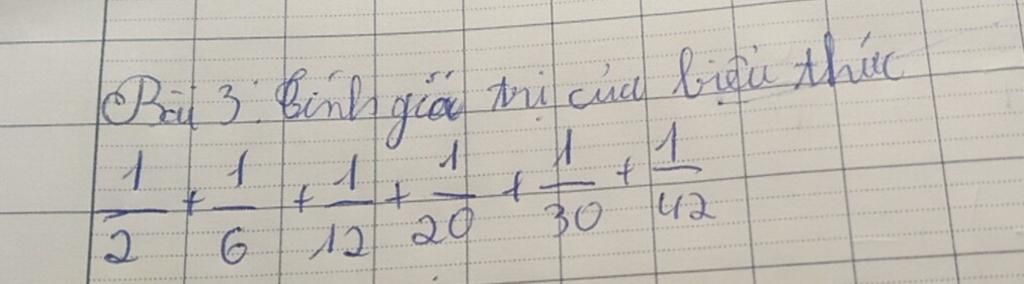 Bài 3: Tính giá trị của biểu thức
1/2 + 1/6 + 1/12 + 1/20 + 1/30 + 1/42